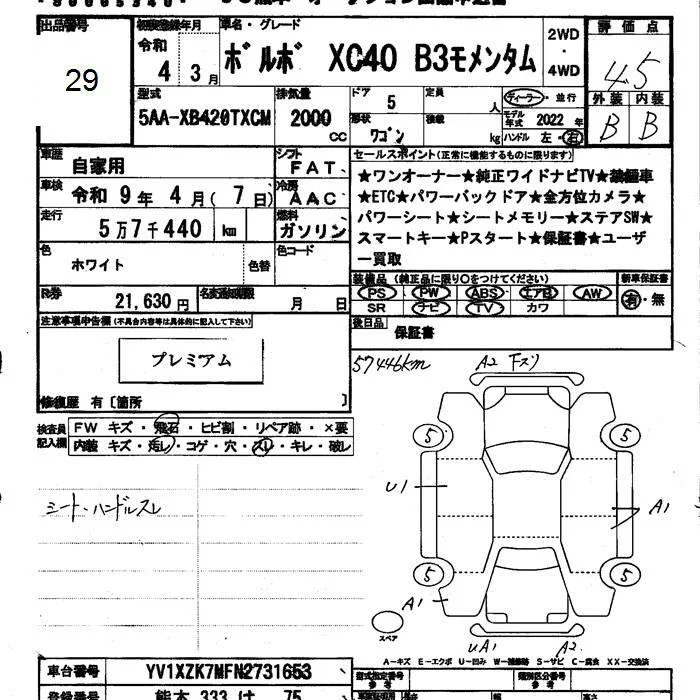 出品番号
29
初度登録年月
令和
4 3月
車名・グレード
ボルボ XC40 B3モメンタム
2WD
・
4WD
評価点
4.5
外装 内装
B B
型式
5AA-XB420TXCM
排気量
2000
CC
ドア
5
定員
人
形状
ワゴン
積載
kg
ディーラー・並行
モデル年式 2022年
ハンドル 左・右
車歴
自家用
シフト
FAT
車検
令和 9年 4月( 7日)
冷房
AAC
走行
5万7千440 km
燃料
ガソリン
色
ホワイト
色替
色コード
R券
21,630円
名変期限
月 日
セールスポイント(正常に機能するものに限ります)
★ワンオーナー★純正ワイドナビTV★禁煙車
★ETC★パワーバックドア★全方位カメラ★
パワーシート★シートメモリー★ステアSW★
スマートキー★Pスタート★保証書★ユーザ
ー買取
装備品 (純正品に限り○をつけてください)
新車保証書
PS PW ABS エアB AW
SR ナビ TV カワ
有・無
後日品
保証書
注意事項申告欄(不具合内容等は具体的に記入して下さい)
プレミアム
修復歴 有〔箇所 〕
検査員
記入欄
FW キズ・飛石・ヒビ割・リペア跡・×要
内装 キズ・汚レ・コゲ・穴・スレ・キレ・破レ
シート・ハンドルスレ
57446km
A2 下スリ
5 5
U1
A1
5 5
A1
スペア
UA1 A2
A-キズ E-エクボ U-凹み W-補修跡 S-サビ C-腐食 XX-交換済
車台番号
YV1XZK7MFN2731653
登録番号
熊本 333 け 75
型式指定番号
参考
類別区分番号
参考